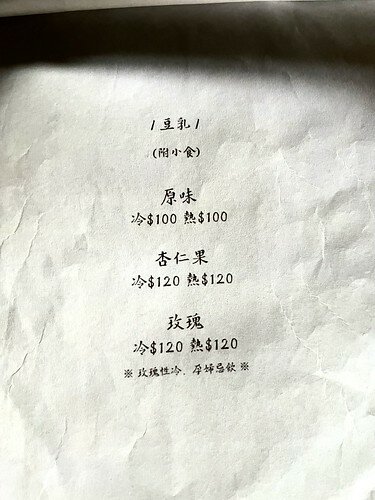 / 豆乳 /
(附小食)
原味
冷$100 熱$100
杏仁果
冷$120 熱$120
玫瑰
冷$120 熱$120
※ 玫瑰性冷、孕婦忌飲 ※